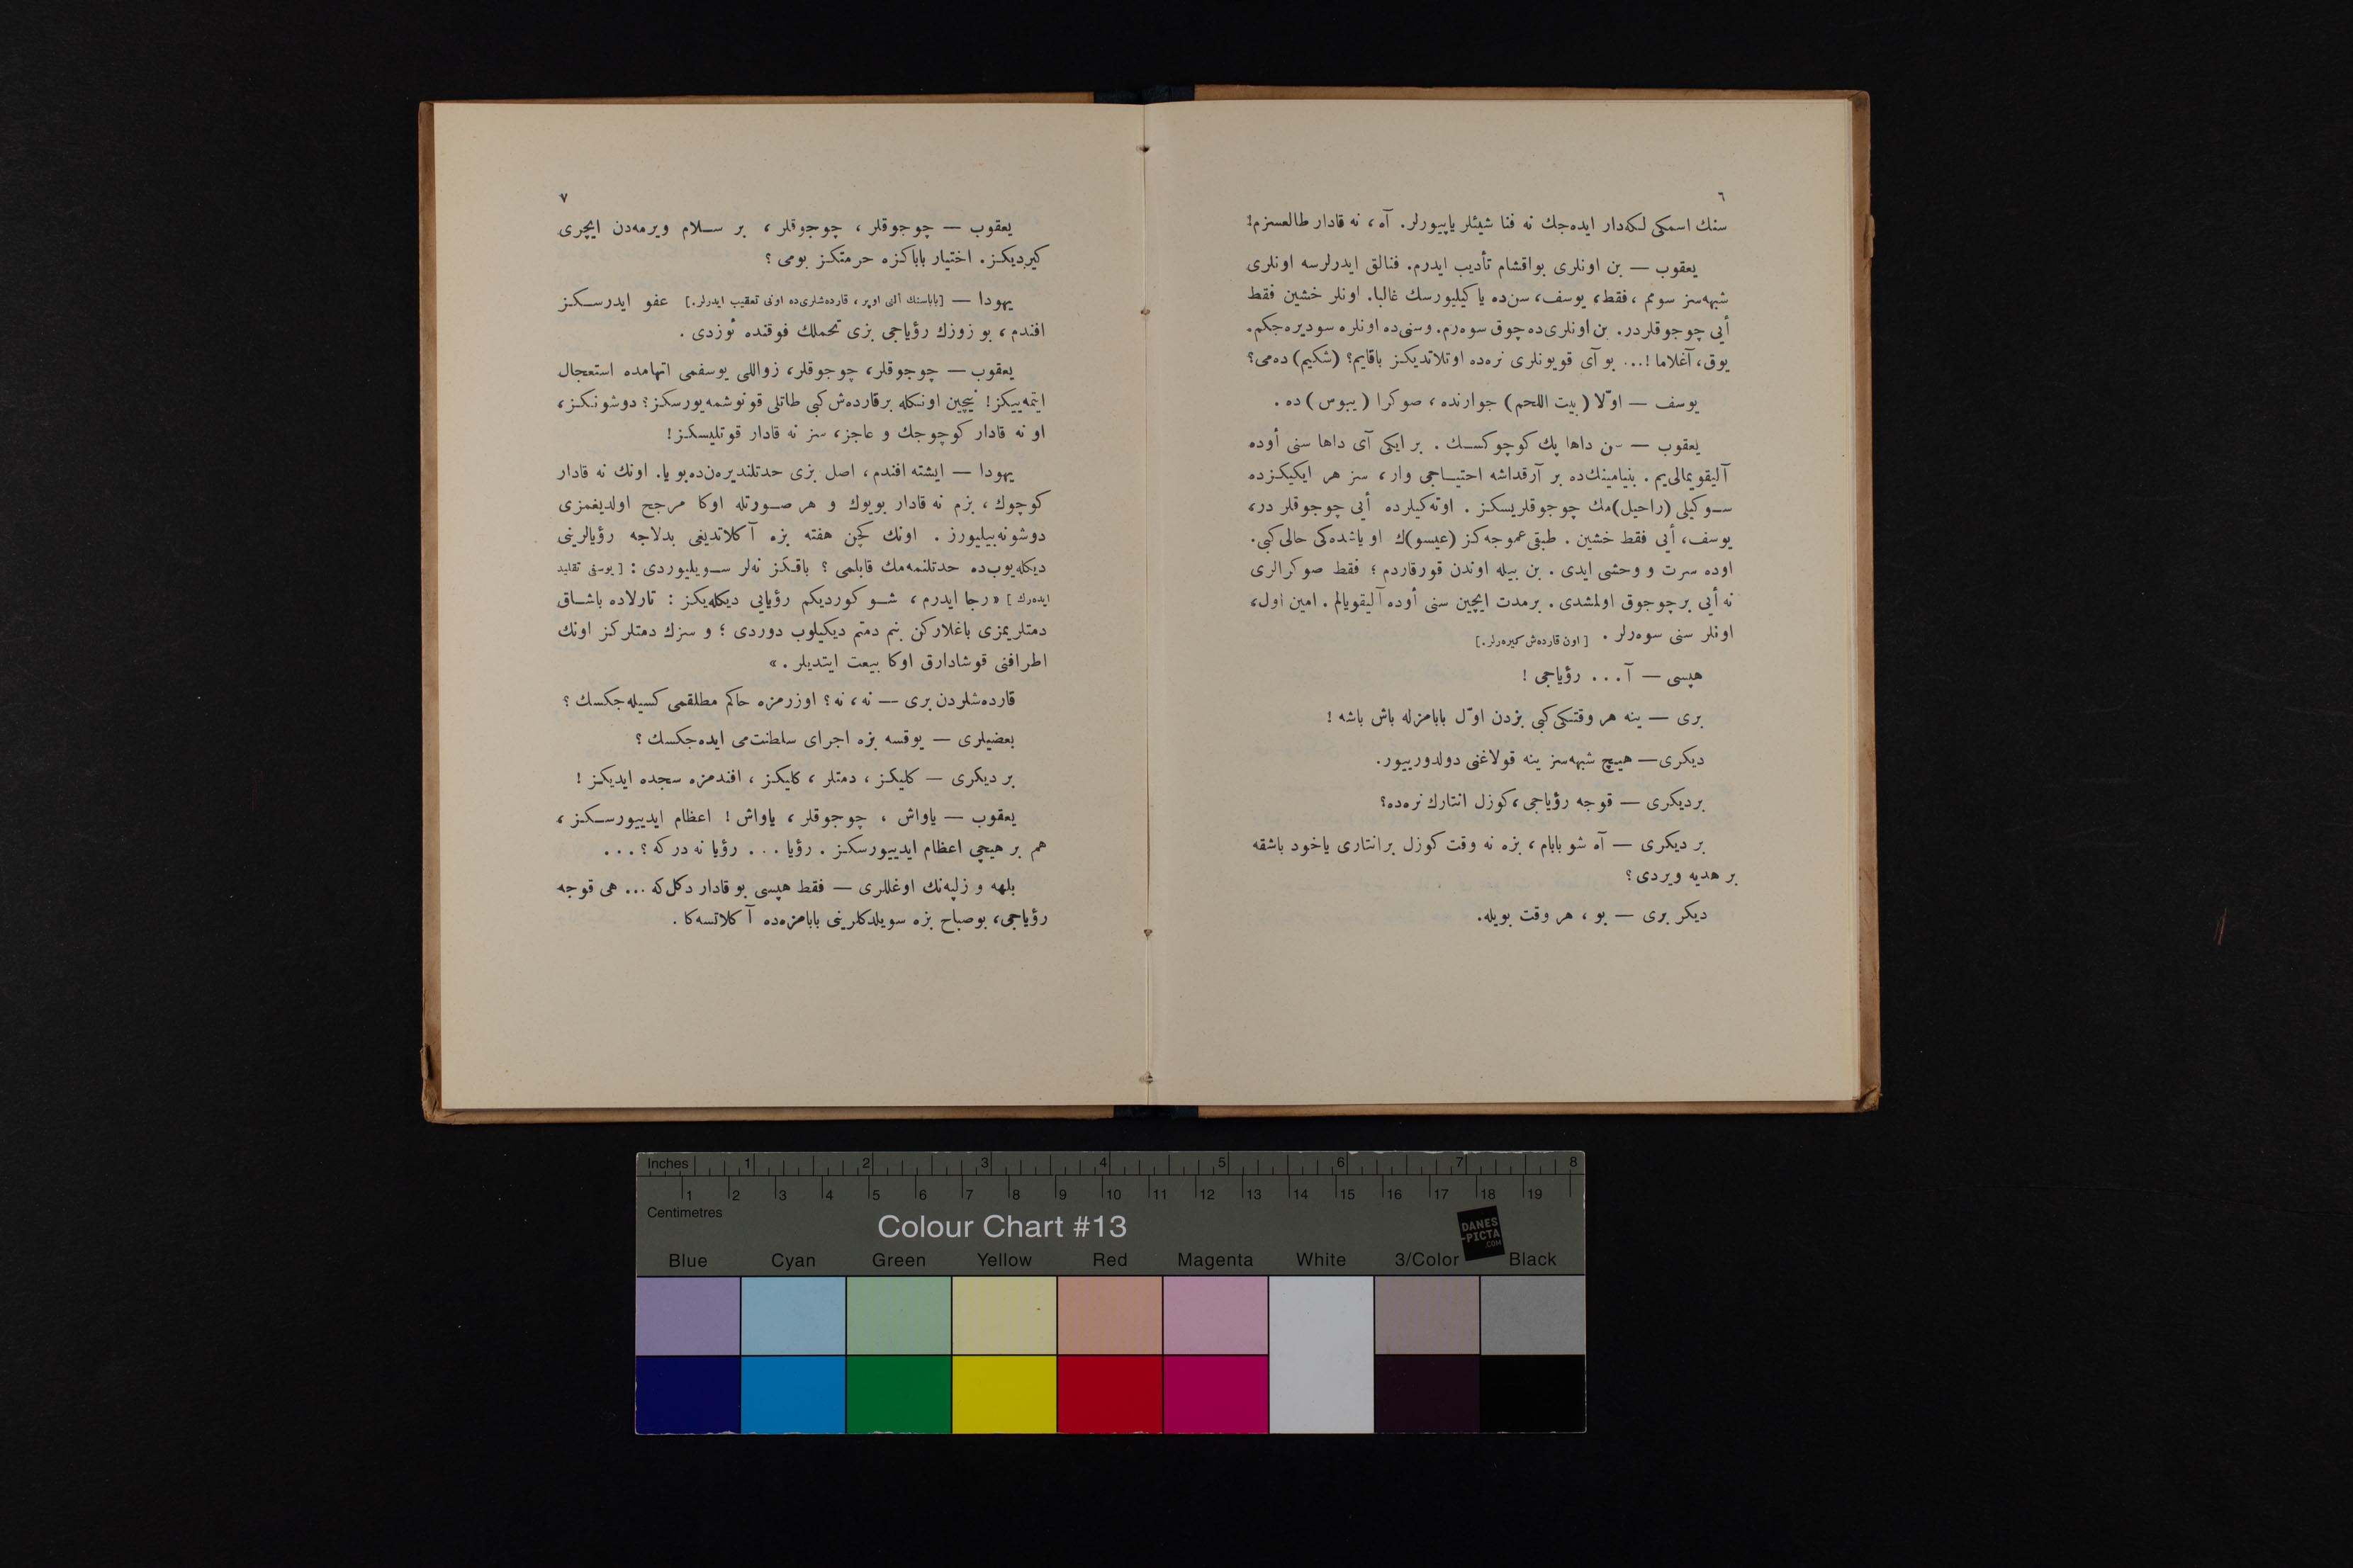 ٦
سنك اسمكى لكه‌دار ايده‌جك نه فنا شيئلر ياپيورلر. آه ، نه قادار طالعسزم!
يعقوب — بن اونلرى بواقشام تأديب ايدرم. فنالق ايدرلرسه اونلرى
شبهه‌سز سوممم ، فقط، يوسف، سن‌ده ياكيليورسك غالبا. اونلر خشين فقط
أيى چوجوقلردر. بن اونلرى‌ده چوق سوه‌رم. وسنى‌ده اونلره سوديره‌جكم.
يوق، آغلاما !... بو آى قويونلرى نره‌ده اوتلاتديكز باقايم؟ (شكيم) ده‌مى؟
يوسف — اوّلا (بيت اللحم) جوارنده ، صوكرا (يبوس) ده .
يعقوب — سن داها پك كوچوكسك . بر ايكى آى داها سنى أوده
آليقويمالى‌يم . بنيامينك‌ده بر آرقداشه احتياجى وار ، سز هر ايكيكزده
سوكيلى (راحيل)مك چوجوقلريسكز . اوته‌كيلرده أيى چوجوقلر در،
يوسف، أيى فقط خشين . طبقى عموجه‌كز (عيسو)ك او ياشده‌كى حالى كبى.
اوده سرت و وحشى ايدى . بن بيله اوندن قورقاردم ؛ فقط صوكرالرى
نه أيى بر چوجوق اولمشدى . برمدت ايچين سنى أوده آليقويالم . امين اول،
اونلر سنى سوه‌رلر . [ اون قارده‌ش كيره‌رلر.]
هپسى — آ ... رؤياجى !
برى — ينه هر وقتكى كبى بزدن اوّل بابامزله باش باشه !
ديكرى — هيچ شبهه‌سز ينه قولاغنى دولدورييور.
برديكرى — قوجه رؤياجى ، كوزل انتارك نره‌ده؟
بر ديكرى — آه شو بابام ، بزه نه وقت كوزل برانتارى ياخود باشقه
بر هديه ويردى ؟
ديكر برى — بو ، هر وقت بويله.
٧
يعقوب — چوجوقلر ، چوجوقلر ، بر سلام ويرمه‌دن ايچرى
كيرديكز. اختيار باباكزه حرمتكز بومى ؟
يهودا — [باباسنك آلنى اوپر ، قارده‌شلرى‌ده اونى تعقيب ايدرلر.] عفو ايدرسكز
افندم ، بو زوزك رؤياجى بزى تحملك فوقنده ئوزدى .
يعقوب — چوجوقلر، چوجوقلر، زواللى يوسفمى اتهامده استعجال
ايتمه‌ييكز! نيچين اونكله برقارده‌ش كبى طاتلى قونوشمه‌يورسكز؟ دوشونكز،
او نه قادار كوچوجك و عاجز، سز نه قادار قوتليسكز!
يهودا — ايشته افندم ، اصل بزى حدتلنديره‌ن‌ده بو يا. اونك نه قادار
كوچوك ، بزم نه قادار بويوك و هر صورتله اوكا مرجح اولديغمزى
دوشونه‌بيليورز . اونك كچن هفته بزه آكلاتديغى بدلاجه رؤيالرينى
ديكله‌يوب‌ده حدتلنمه‌مك قابلمى ؟ باقكز نه‌لر سويليوردى : [ يوسفى تقليد
ايده‌رك ] «رجا ايدرم ، شو كورديكم رؤيايى ديكله‌يكز : تارلاده باشاق
دمتلريمزى باغلاركن بنم دمتم ديكيلوب دوردى ؛ و سزك دمتلركز اونك
اطرافنى قوشادارق اوكا بيعت ايتديلر . »
قارده‌شلردن برى — نه ، نه ؟ اوزرمزه حاكم مطلقمى كسيله‌جكسك ؟
بعضيلرى — يوقسه بزه اجراى سلطنت‌مى ايده‌جكسك ؟
بر ديكرى — كليكز ، دمتلر ، كليكز ، افندمزه سجده ايديكز !
يعقوب — ياواش ، چوجوقلر ، ياواش ! اعظام ايدييورسكز ،
هم بر هيچى اعظام ايدييورسكز . رؤيا ... رؤيا نه در كه ؟ ...
بلهه و زلپه‌نك اوغللرى — فقط هپسى بو قادار دكل كه ... هى قوجه
رؤياجى، بوصباح بزه سويلدكلرينى بابامزه‌ده آكلاتسه‌كا .
Inches 1 2 3 4 5 6 7 8
1 2 3 4 5 6 7 8 9 10 11 12 13 14 15 16 17 18 19
Centimetres
Colour Chart #13
DANES
-PICTA
.COM
Blue Cyan Green Yellow Red Magenta White 3/Color Black